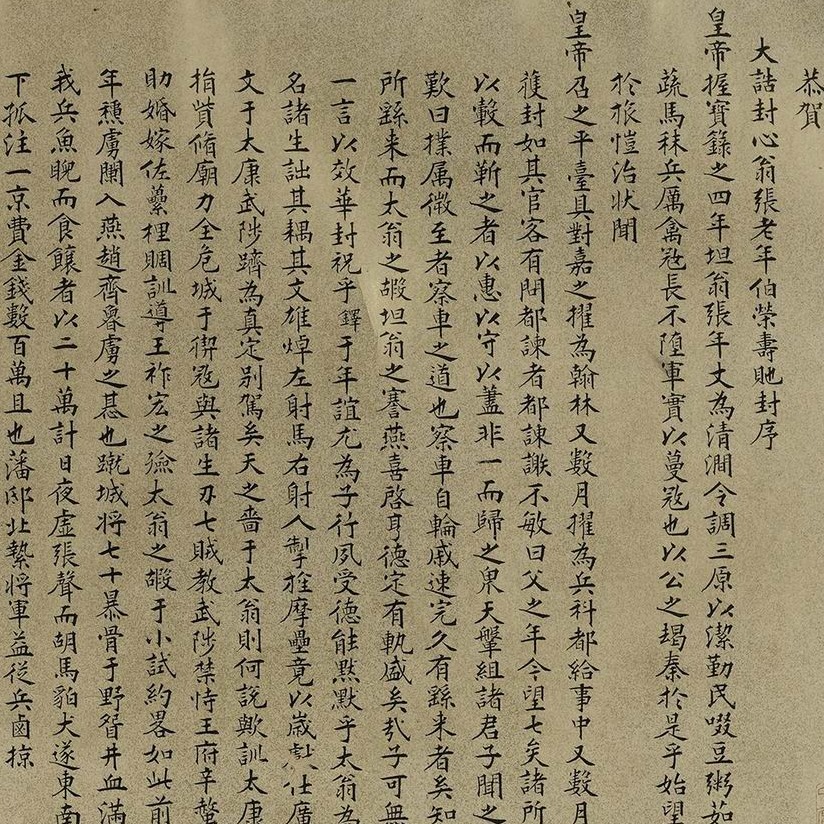 恭賀
大誥封心翁張老年伯榮壽貤封序
皇帝握寶籙之四年坦翁張年丈為清澗令調三原以潔勤民啜豆粥茹
蔬馬秣兵厲禽寇長不墮軍實以蔓寇也以公之竭秦於是乎始望
於旅愷治狀聞
皇帝召之平臺具對嘉之擢為翰林又數月擢為兵科都給事中又數月
獲封如其官客有問都諫者都諫謝不敏曰父之年今望七矣諸所
以轂而靳之者以惠以守以藎非一而歸之泉天鞶組諸君子聞之
歎曰撲属微至者察車之道也察車自輪戚速完久有繇来者矣知
所繇来而太翁之嘏坦翁之謇燕喜啓亨德定有執盛矣哉子可無
一言以效華封祝乎鐸于年誼尤為子行夙受德能黙黙乎太翁為
名諸生詘其耦其文雄焯左射馬右射人掣摧摩壘竟以歲仕廣
文于太康武陟躋為真定別駕矣天之嗇于太翁則何說歟訓太康
捐貲脩廟力全危城于禊寇與諸生刃七賊教武陟禁恃王府辛螫
助婚嫁佐虆梩賙訓導王祚宏之殮太翁之嘏于小試約畧如此前
年䕌虜闌入燕趙齊魯虜之惎也蹴城将七十暴骨于野眢井血滿
我兵魚睨而食饟者以二十萬計日夜虛張聲而胡馬豹犬遂東南
下孤注一京費金錢數百萬且也藩邸北縶将軍益従兵鹵掠